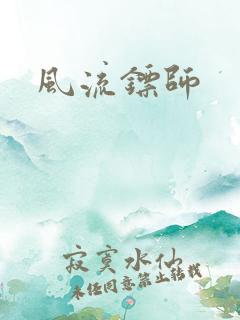 風流鏢師
寂寞水仙
未经同意禁止转载